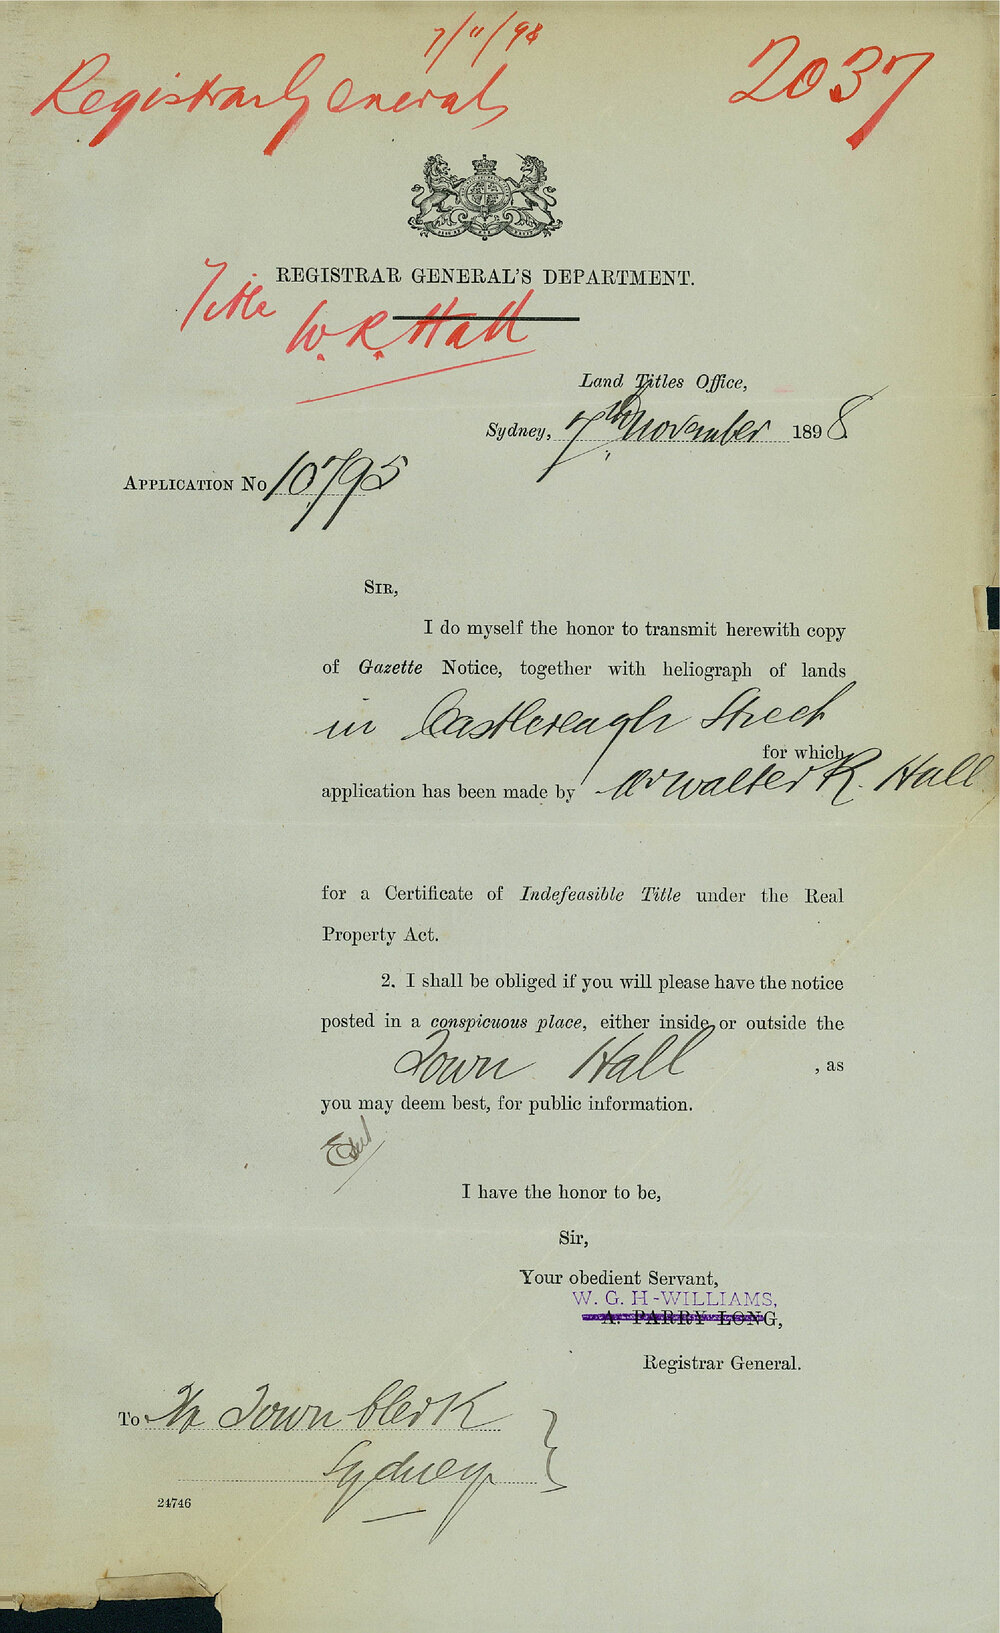 7/11/98
Registrar General
2037
REGISTRAR GENERAL'S DEPARTMENT.
Title
W. R. Hall
Land Titles Office,
Sydney, 7th November 1898
APPLICATION No 10795
SIR,
I do myself the honor to transmit herewith copy
of Gazette Notice, together with heliograph of lands
in Castlereagh Street
for which
application has been made by Mr Walter R. Hall
for a Certificate of Indefeasible Title under the Real
Property Act.
2. I shall be obliged if you will please have the notice
posted in a conspicuous place, either inside or outside the
Town Hall , as
you may deem best, for public information.
I have the honor to be,
Sir,
Your obedient Servant,
W. G. H-WILLIAMS,
A. PARRY LONG,
Registrar General.
To The Town Clerk
Sydney
24746